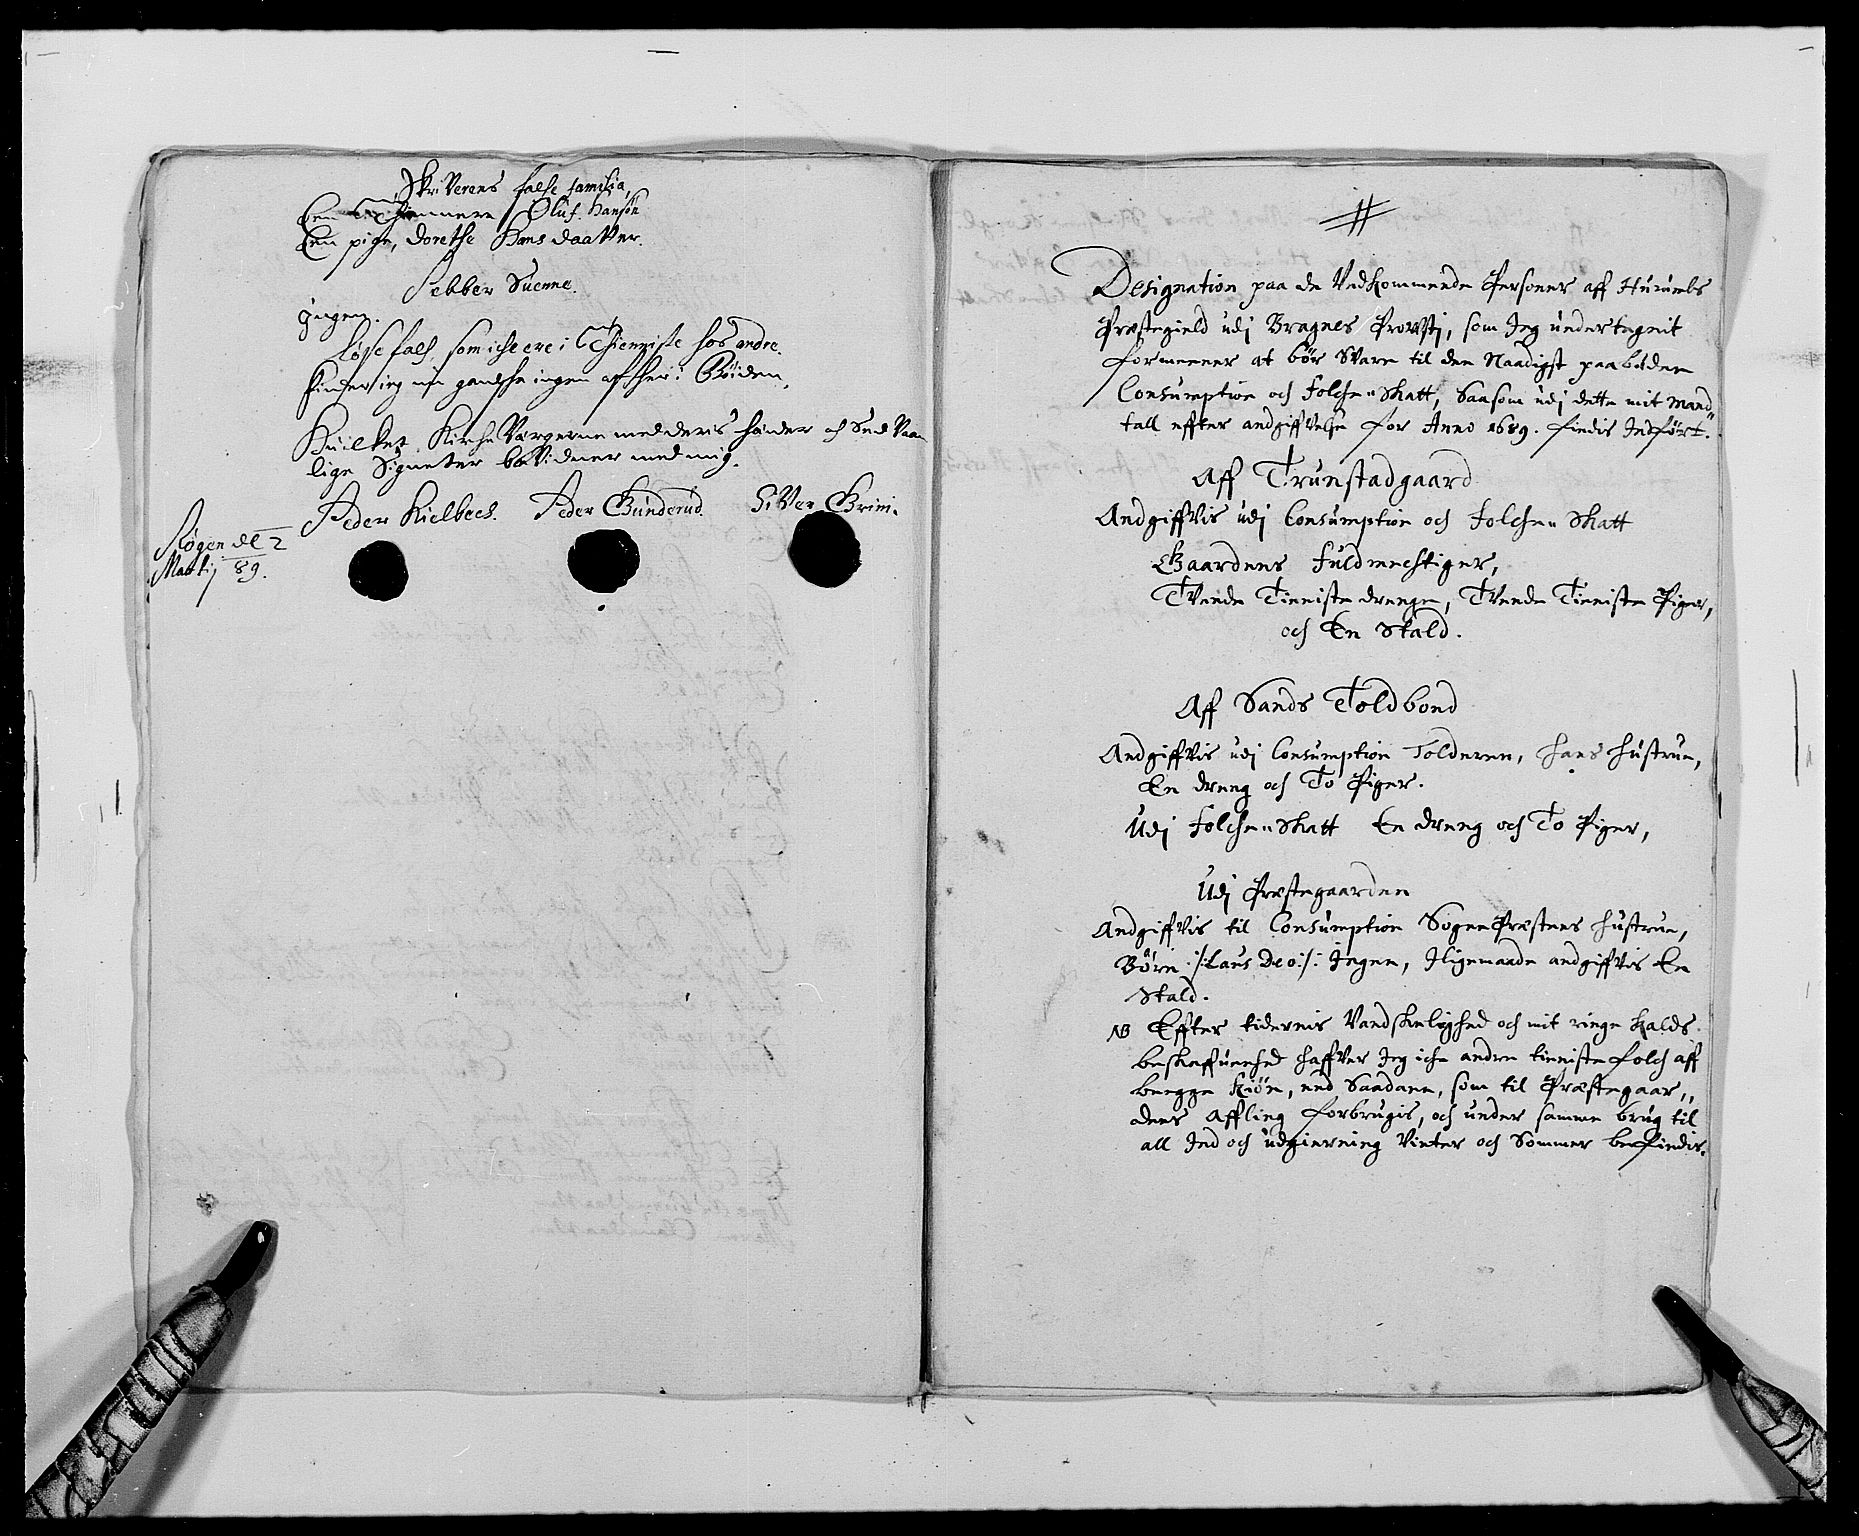 Skriverens halfe familia,
Een Thiennere Oluf Hansøn
Een pige, Dorethe Hans daatter.
Jebber Suenne.
Ingen.
Løse folch, som iche ere i Thienniste hos andre.
finder ieg nu gandsche ingen af her i Bøiden,
Huilket Kirche Værgerne med deris hænder och Sed Vaan
lige Signeter bevidner med mig.
Peder Kielbech. Peder Gunderud. Siver Grini.
Røgen dᶒ 2
Martij 89.
Designation paa de Vedkommende Personer aff Hurumbs
Præstegield udj Bragnes Provstj, som Jeg undertegnit
formeener at bør Svare til den Naadigst paabødene
Consumption och Folche-Skatt, Saasom udj dette mit Mand-
tall effter andgiffvelse for Anno 1689. findis Indført.
Aff Trunstadgaard
Andgiffvis udj Consumption och Folche-Skatt
Gaardens Fuldmechtiger,
Tvende Tieniste drenge, Tvende Tieniste Piger,
och En Stald.
Aff Sands Toldbond
Andgiffvis udj Consumption Tolderen, Hans Hustrue,
En dreng och To Piger.
Udj Folche-Skatt En dreng och To Piger,
Udj Præstegaarden
Andgiffvis til Consumption SognePræstens Hustrue,
Børn /: Laus Deo :/ Ingen, Iligemaade andgiffvis En
Stald.
NB Effter tidernis Vandskelighed och mit ringe Kalds
beskaffuenhed haffver Jeg iche andre tieniste folch aff
begge Kiøn, end Saadane, som til Præstegaar-
dens Affling forbrugis, och under samme brug til
all Ind och udgierning Vinter och Sommer befindis.